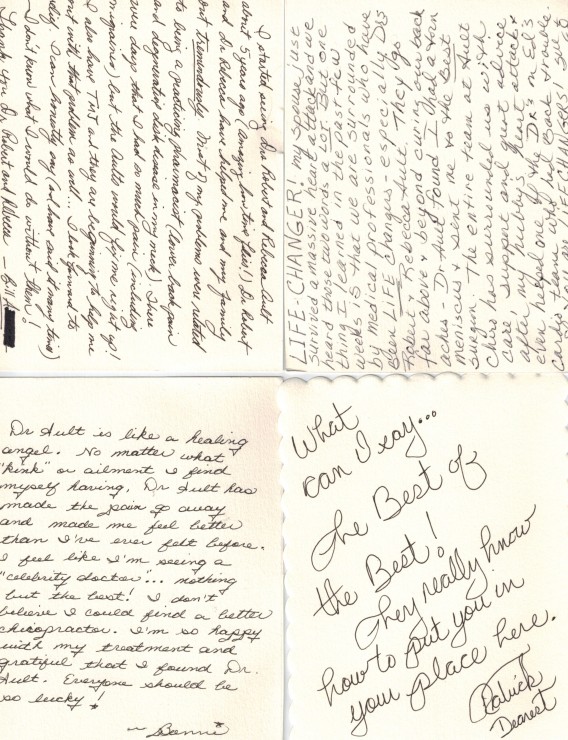 I started seeing Drs. Robert and Rebecca Ault
about 5 years ago (amazing how time flies!) Dr. Robert
and Dr. Rebecca have helped me and my family
out tremendously. Most of my problems were related
to being a practicing pharmacist (lower back pain
and degenerative disk disease in my neck). There
were days that I had so much pain (including
migraines) but the Aults would fix me right up!
I also have TMJ and they are beginning to help me
out with that problem as well. I look forward to
I can honestly say (and have said it many times)
I don't know what I would do without them!
Thank you Dr. Robert and Rebecca — Bill
LIFE-CHANGER! My spouse just
survived a massive heart attack and we
heard those two words a lot. But one
thing I learned in the past few
weeks is that we are surrounded
by medical professionals who have
been LIFE Changers - especially Drs
Robert & Rebecca Ault. They go
far above & beyond curing our back
aches. Dr Ault found I had a torn
meniscus & sent me to the best
surgeon. The entire team at Ault
Chiro has surrounded us with
care, support and great advice
after my hubby's heart attack &
even helped one of the DR's in El's
cardio team who had back trouble.
LIFE CHANGERS!
Dr Ault is like a healing
angel. No matter what
"kink" or ailment I find
myself having, Dr Ault has
made the pain go away
and made me feel better
than I've ever felt before.
I feel like I'm seeing a
"celebrity doctor"... nothing
but the best! I don't
believe I could find a better
chiropractor. I'm so happy
with my treatment and
grateful that I found Dr.
Ault. Everyone should be
so lucky!
~ Bonni
What
can I say...
the Best of
the Best!
They really know
how to put you in
your place here.
Patrick
Dearest